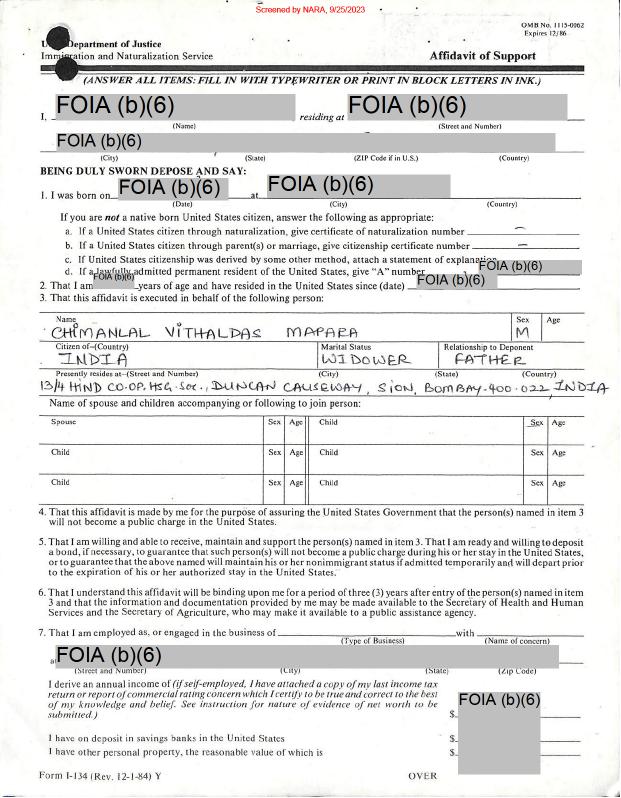 Screened by NARA, 9/25/2023
OMB No. 1115-0062
Expires 12/86
Department of Justice
Immigration and Naturalization Service
Affidavit of Support
(ANSWER ALL ITEMS: FILL IN WITH TYPEWRITER OR PRINT IN BLOCK LETTERS IN INK.)
I, FOIA (b)(6) residing at FOIA (b)(6)
(Name) (Street and Number)
FOIA (b)(6)
(City) (State) (ZIP Code if in U.S.) (Country)
BEING DULY SWORN DEPOSE AND SAY:
1. I was born on FOIA (b)(6) at FOIA (b)(6)
(Date) (City) (Country)
If you are not a native born United States citizen, answer the following as appropriate:
a. If a United States citizen through naturalization, give certificate of naturalization number —
b. If a United States citizen through parent(s) or marriage, give citizenship certificate number —
c. If United States citizenship was derived by some other method, attach a statement of explanation
d. If a lawfully admitted permanent resident of the United States, give "A" number FOIA (b)(6)
2. That I am FOIA (b)(6) years of age and have resided in the United States since (date) FOIA (b)(6)
3. That this affidavit is executed in behalf of the following person:
Name Sex Age
CHIMANLAL VITHALDAS MAPARA M
Citizen of–(Country) Marital Status Relationship to Deponent
INDIA WIDOWER FATHER
Presently resides at–(Street and Number) (City) (State) (Country)
13/4 HIND CO-OP. HSG. SOC., DUNCAN CAUSEWAY, SION, BOMBAY-400-022, INDIA
Name of spouse and children accompanying or following to join person:
Spouse Sex Age Child Sex Age
Child Sex Age Child Sex Age
Child Sex Age Child Sex Age
4. That this affidavit is made by me for the purpose of assuring the United States Government that the person(s) named in item 3
will not become a public charge in the United States.
5. That I am willing and able to receive, maintain and support the person(s) named in item 3. That I am ready and willing to deposit
a bond, if necessary, to guarantee that such person(s) will not become a public charge during his or her stay in the United States,
or to guarantee that the above named will maintain his or her nonimmigrant status if admitted temporarily and will depart prior
to the expiration of his or her authorized stay in the United States.
6. That I understand this affidavit will be binding upon me for a period of three (3) years after entry of the person(s) named in item
3 and that the information and documentation provided by me may be made available to the Secretary of Health and Human
Services and the Secretary of Agriculture, who may make it available to a public assistance agency.
7. That I am employed as, or engaged in the business of with
(Type of Business) (Name of concern)
FOIA (b)(6)
(Street and Number) (City) (State) (Zip Code)
I derive an annual income of (if self-employed, I have attached a copy of my last income tax
return or report of commercial rating concern which I certify to be true and correct to the best
of my knowledge and belief. See instruction for nature of evidence of net worth to be
submitted.) $ FOIA (b)(6)
I have on deposit in savings banks in the United States $
I have other personal property, the reasonable value of which is $
Form I-134 (Rev. 12-1-84) Y OVER